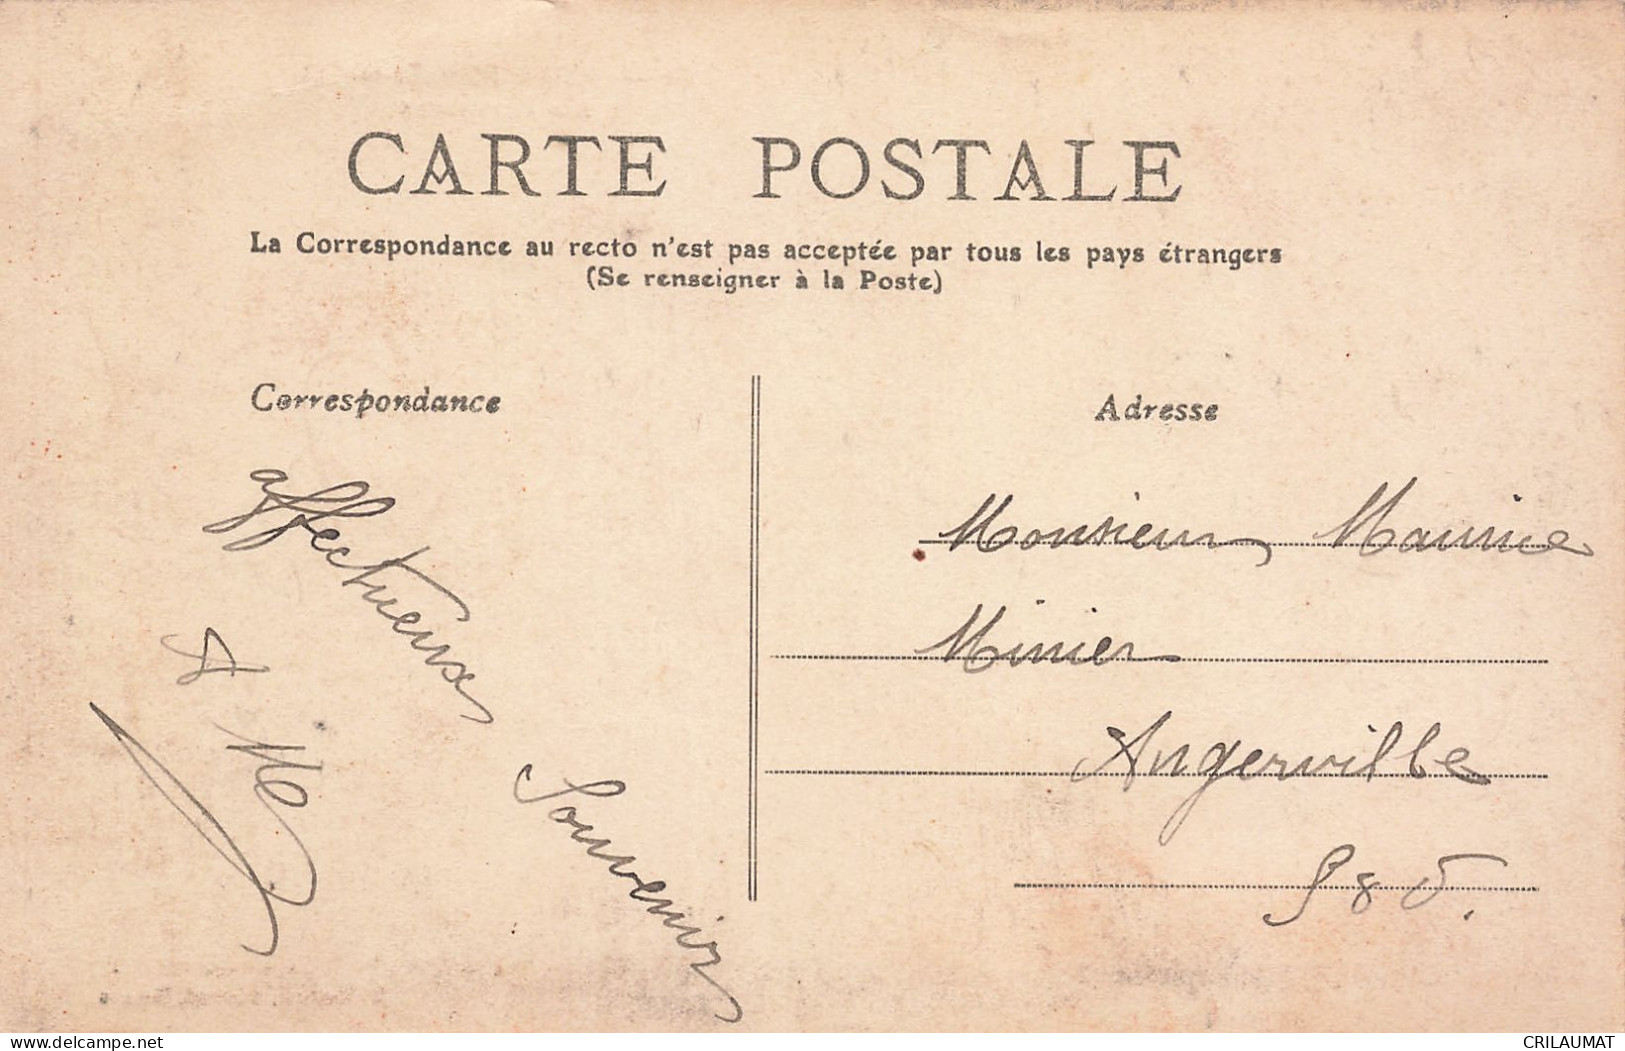 CARTE POSTALE
La Correspondance au recto n'est pas acceptée par tous les pays étrangers
(Se renseigner à la Poste)
Correspondance
affectueux
Souvenir
Adresse
Monsieur Maurice
Minier
Angerville
S & O.
www.delcampe.net
CRILAUMAT